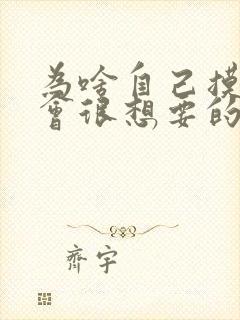 为啥自己摸
會很想要的
齊宇